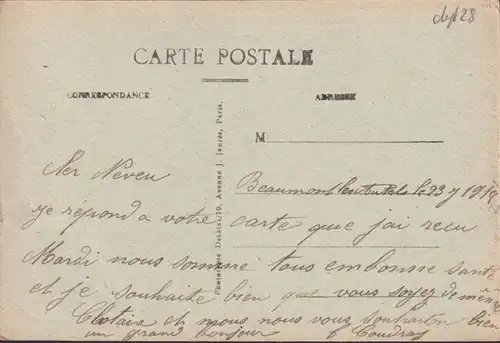 dep 28
CARTE POSTALE
CORRESPONDANCE
ADRESSE
M
Phototypie Desaix, 10, Avenue J. Jaurès, Paris.
Beaumont les Autels le 23 7 191
Ner Neveu
je répond a votre carte que j'ai recu
Mardi nous somme tous embonne santé
et je souhaite bien que vous soyez de même
Clotaire et nous nous vous souhaiton bien
un grand bonjour C Coudray